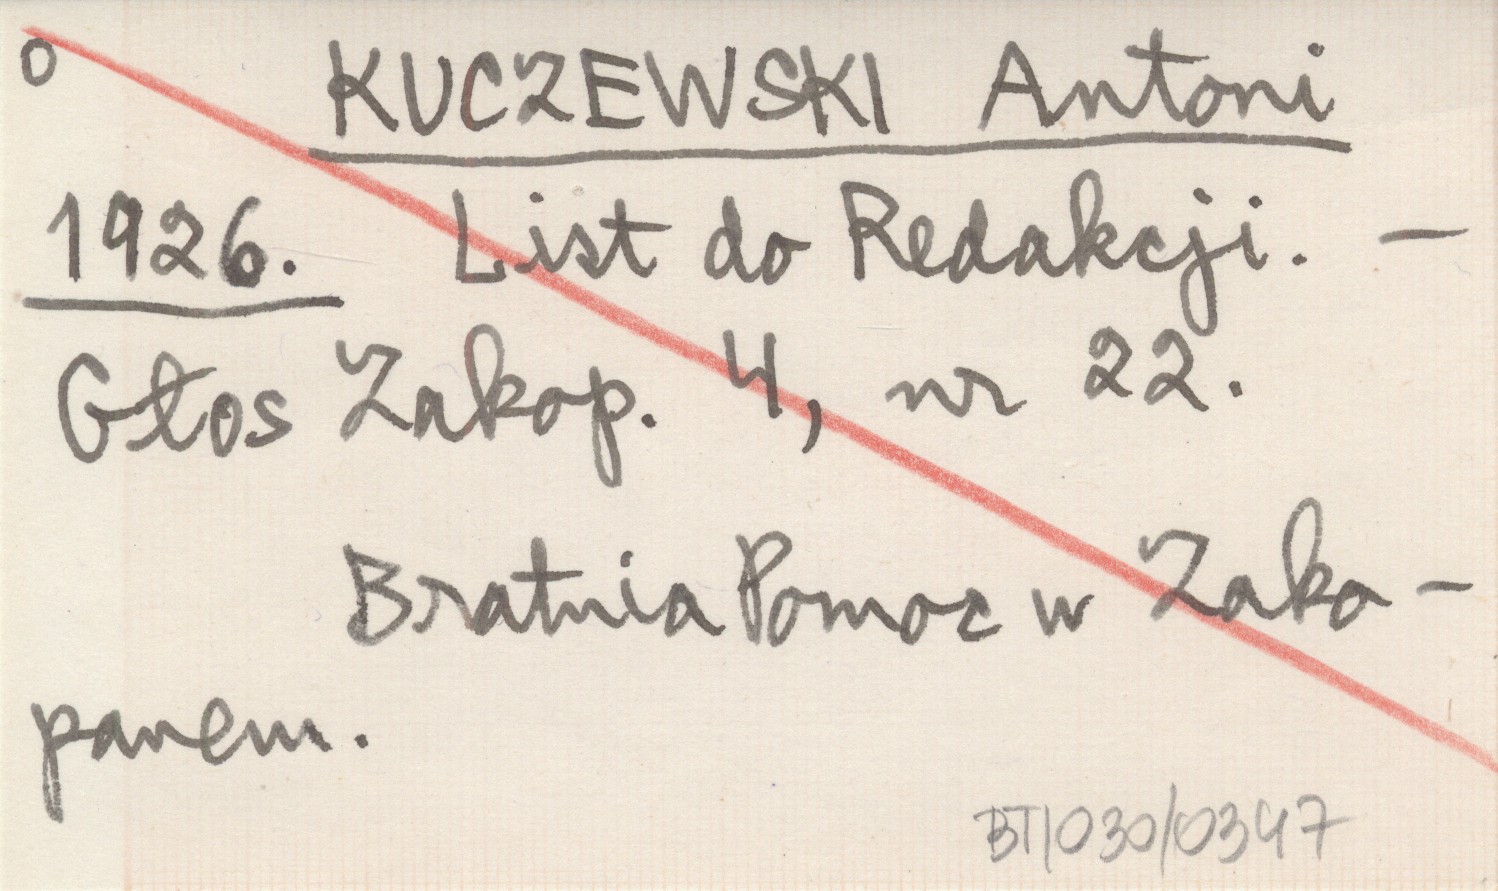 o KUCZEWSKI Antoni
1926. List do Redakcji. –
Głos Zakop. 4, nr 22.
Bratnia Pomoc w Zako-
panem.
BT/030/0347